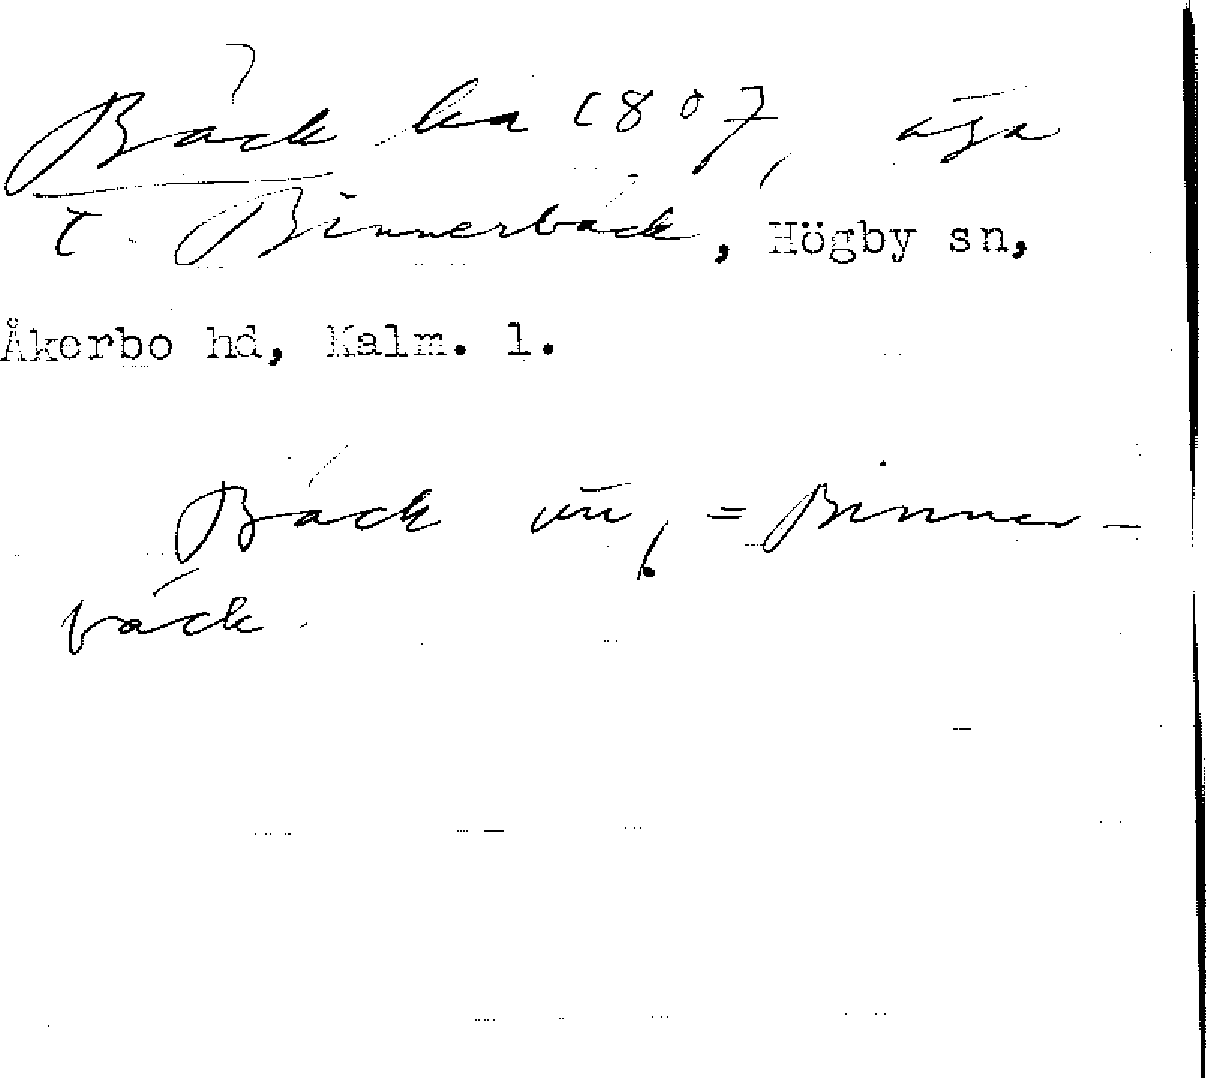 Bäck ka 1807, äga
t. Binnerbäck, Högby sn,
Åkerbo hd, Kalm. l.
Bäck = Binner-
bäck.